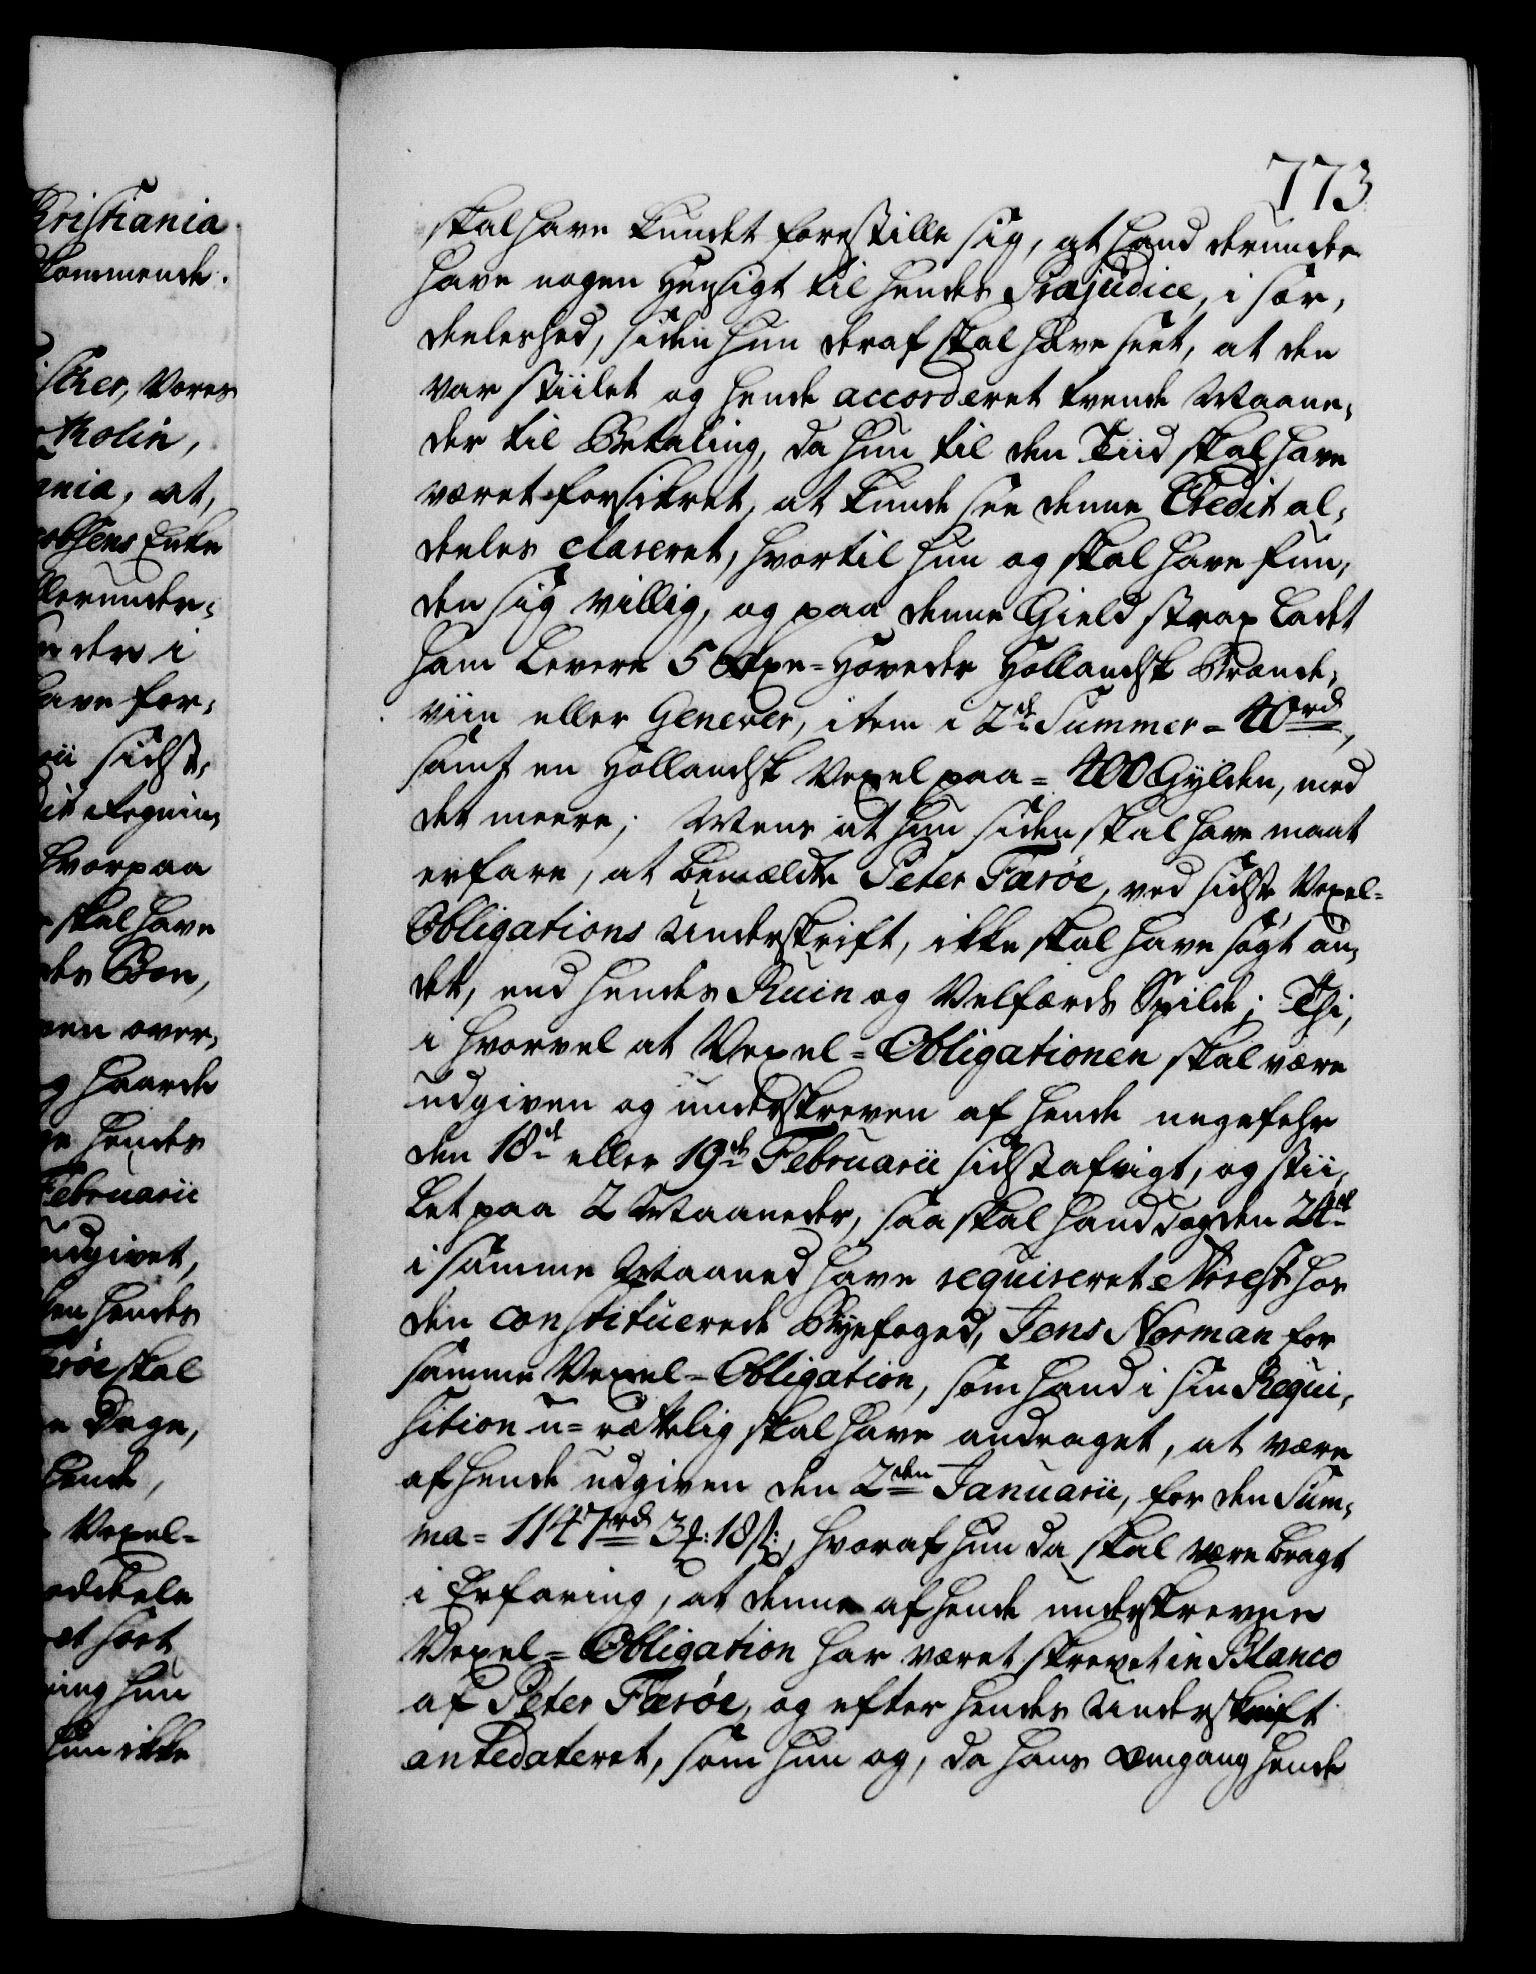 773
skal have kundet forestille sig, at hand derunder
have nogen Hensigt til hendes Præjudice, i sær,
deeleshed, siden hun deraf skal have seet, at den
var stiilet og hende accorderet tvende Maane,
der til Betaling, da hun til den Tiid skal have
været forsikret, at kunde see denne Credit al,
deeles claseret, hvortil hun og skal have fun,
den sig villig, og paa denne Gield strax ladet
ham levere 5 Oxe-Hoveder Hollandsk Brænde,
viin eller Genever, item i 2de Summer = 40rd,
samt en Hollandsk Vexel paa = 400 Gylden, med
det meere; Mens at hun siden skal have maat
erfare, at bemældte Peter Færöe, ved sidste Vexel-
Obligations Underskrift, ikke skal have søgt an,
det, end hendes Ruin og Velfærds Spilde; Thi,
i hvorvel at Vexel-Obligationen skal være
udgiven og underskreven af hende ungefehr
den 18de eller 19de Februarii sidstafvigt, og stii,
let paa 2 Maaneder, saa skal hand dog den 24de
i samme Maaned have requireret Arrest hos
den constituerede Byefoged, Jens Norman for
samme Vexel-Obligation, som hand i sin Requi,
sition u-rættelig skal have andraget, at være
af hende udgiven den 2den Januarii, for den Sum,
ma = 1147rd 3f: 18s:, hvoraf hun da skal være bragt
i Erfaring, at denne af hende underskreven
Vexel-Obligation har været skrevet in Blanco
af Peter Færöe, og efter hendes Underskrift
antedateret, som hun og, da hans Omgang hende
Christiania
kommende.
Vores
Molin,
at,
Enke
i
have for,
sidst,
hvorpaa
skal have
over,
haarde
hendes
Februarii
udgivet,
hendes
skal
Dage,
hende,
Vexel-
hun
hun ikke